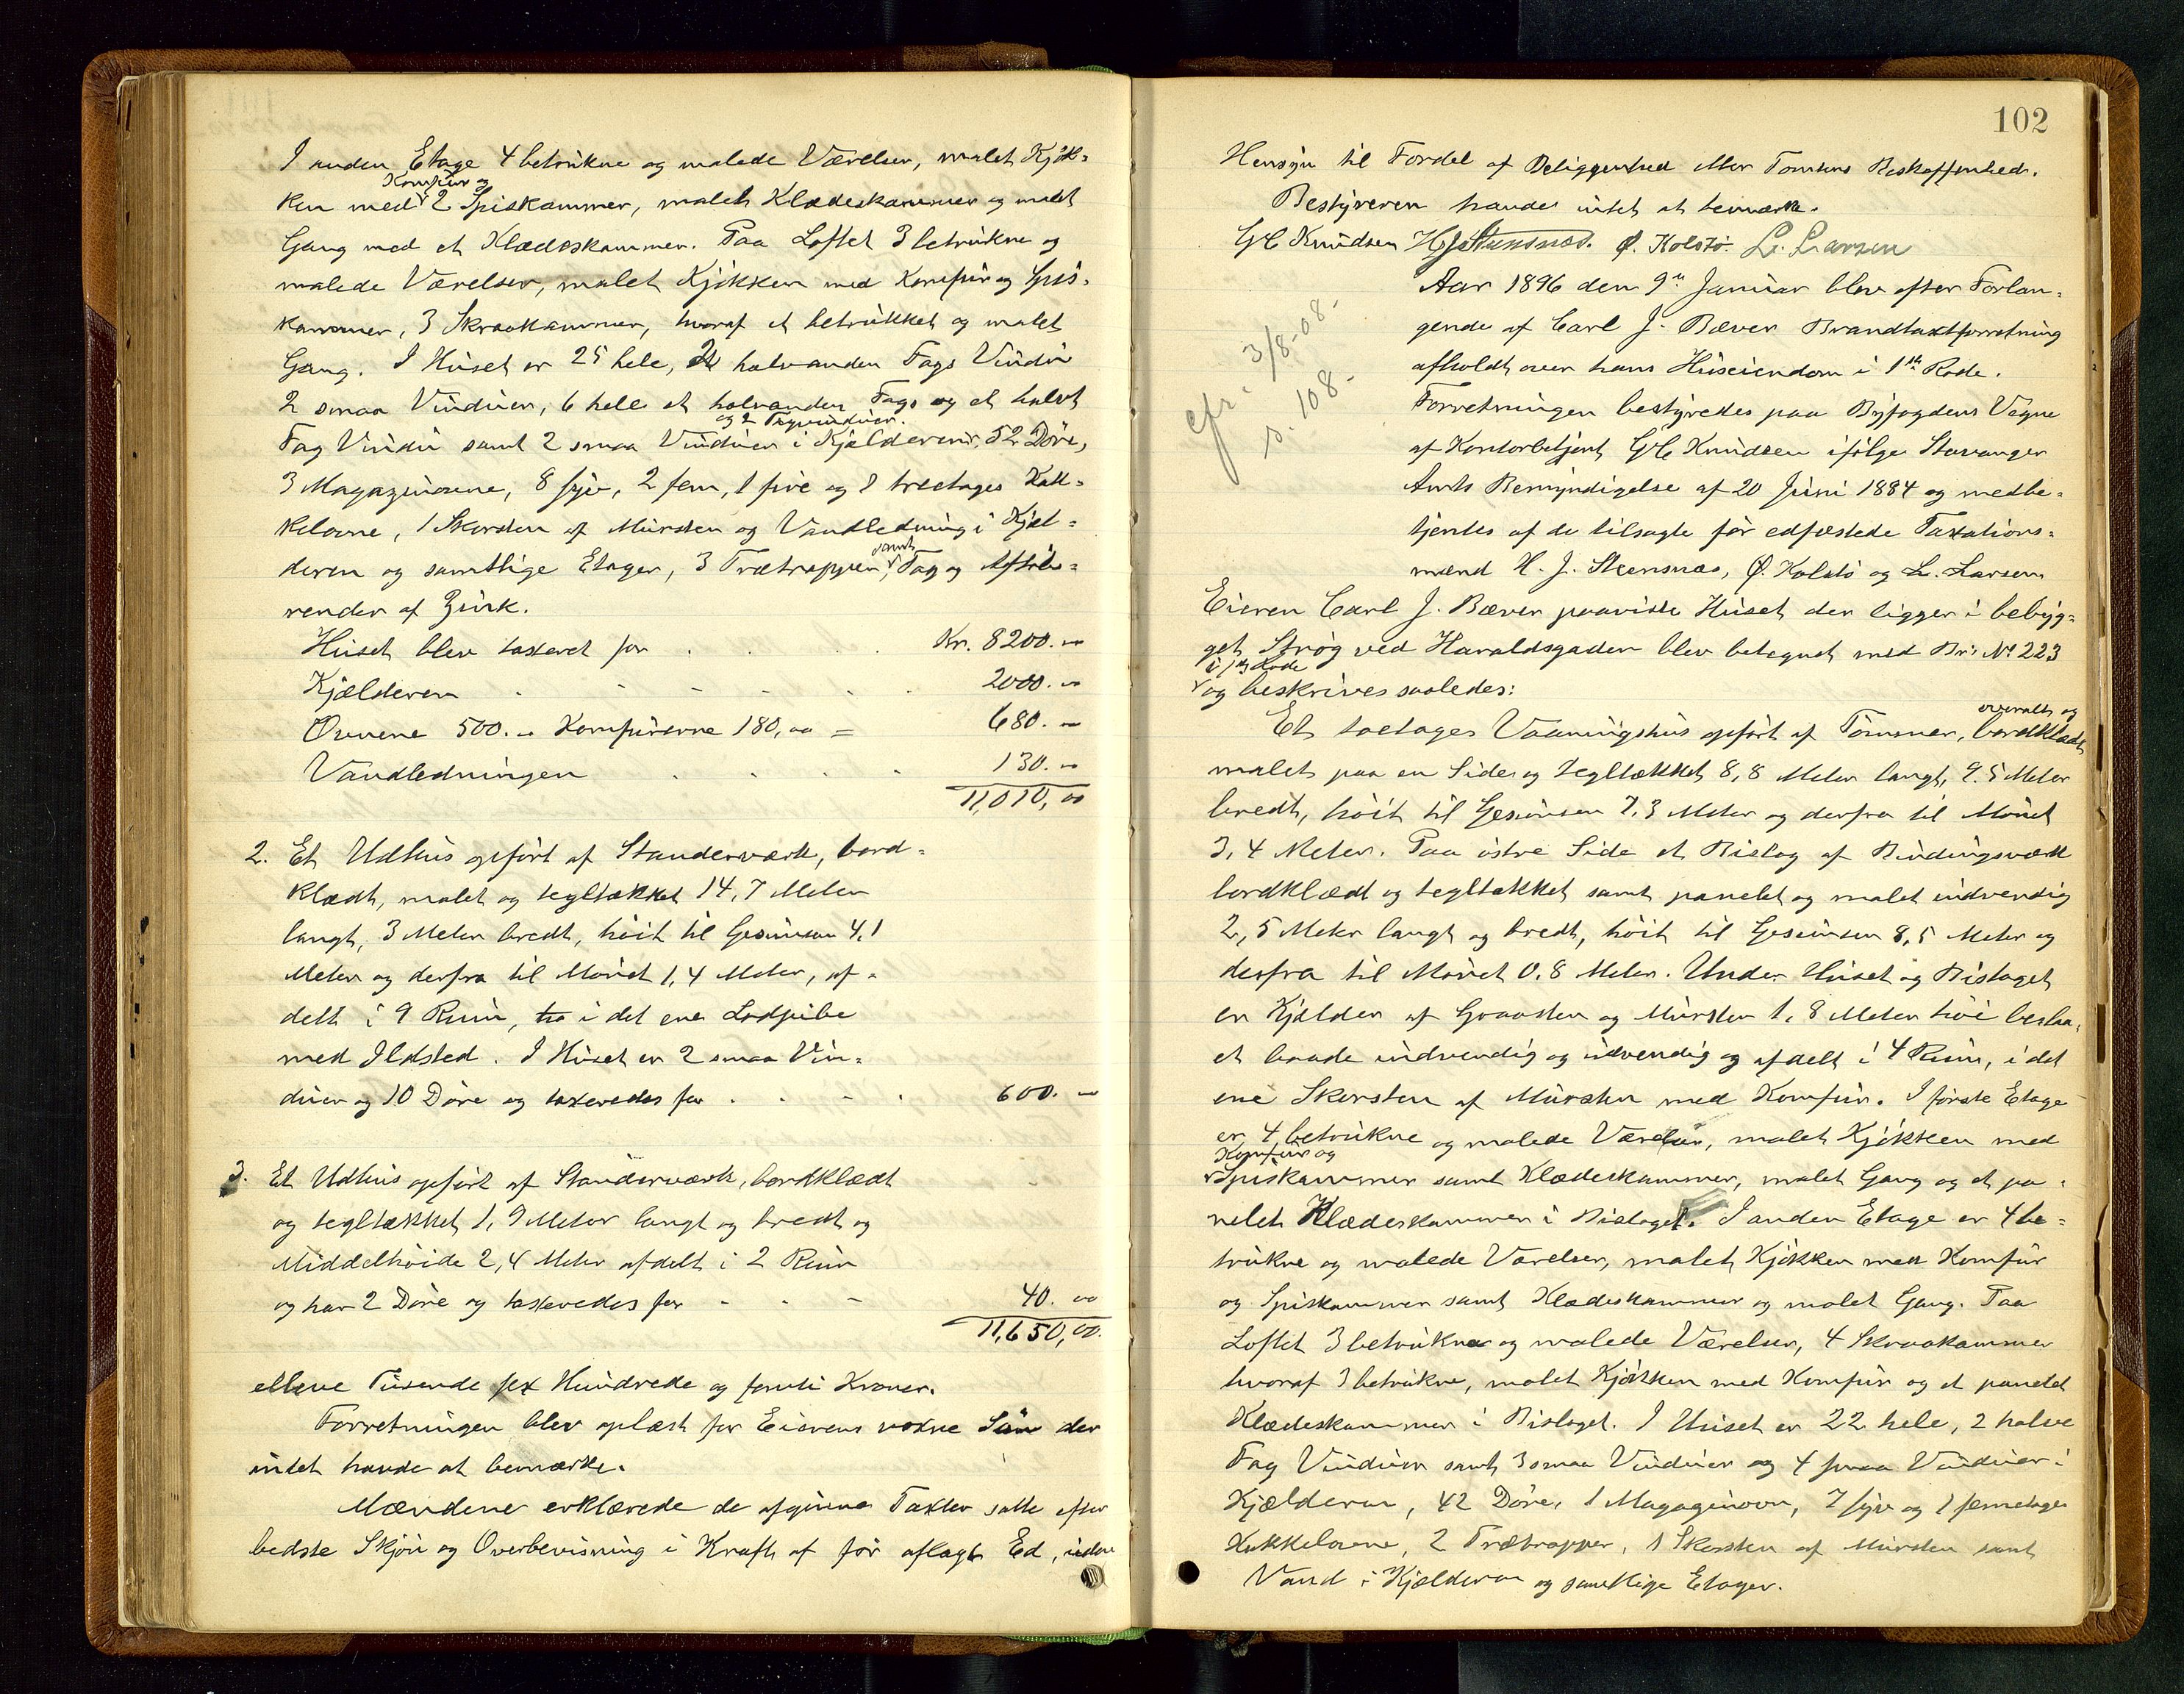 I anden Etage 4 betrukne og malede Værelser, malet Kjøk-
Komfur og
ken med 2 Spiskammer, malet Klædeskammer og malet
Gang med et Klædeskammer. Paa Loftet 3 betrukne og
malede Værelser, malet Kjøkken med Komfur og Spis-
kammer, 3 Skraakammer, hvoraf et betrukket og malet
Gang. I Huset er 25 hele, halvanden Fags Vindu
2 smaa Vinduer, 6 hele et halvanden Fags og et halvt
og 2 Tagvinduer.
Fag Vindu samt 2 smaa Vinduer i Kjælderen. 52 Døre,
3 Magazinovne, 8 syv, 2 fem, 1 fire og 1 treetages Kak-
kelovne, 1 Skorsten af Mursten og Vandledning i Kjæl-
samt
deren og samtlige Etager, 3 Trætrapper, Tag og Afløbs-
render af Zink.
Huset blev taxeret for . . . Kr. 8200. "
Kjælderen - - - - - . 2000. "
Ovnene 500. " Komfurerne 180,00 = 680. "
Vandledningen . . . . 130. "
11,010,00
2. Et Udhus opført af Standerværk, bord-
klædt, malet og tegltækket 14,7 Meter
langt, 3 Meter bredt, høit til Gesimsen 4,1
Meter og derfra til Mønet 1,4 Meter, af-
delt i 9 Rum, i det ene Lodpibe
med Ildsted. I Huset er 2 smaa Vin-
duer og 10 Døre og taxeredes for . - - . 600. "
3. Et Udhus opført af Standerværk, bordklædt
og tegltækket 1,9 Meter langt og bredt og
Middelhøide 2,4 Meter afdelt i 2 Rum
og har 2 Døre og taxeredes for - - - 40. 00
11,650,00.
elleve Tusende sex Hundrede og femti Kroner.
Forretningen blev oplæst for Eierens voxne Søn der
intet havde at bemærke.
Mændene erklærede de afgivne Taxter satte efter
bedste Skjøn og Overbevisning i Kraft af før aflagt Ed, uden
102
Hensyn til Fordel af Beliggenhed eller Tomtens Beskaffenhed.
Bestyreren havde intet at bemærke.
G C Knudsen H J Steensnæs. Ø. Kolstø. L. Larsen
cfr. 3/8-08-
s. 108-
Aar 1896 den 9de Januar blev efter Forlan-
gende af Carl J. Bæver Brandtaxtforretning
afholdt over hans Huseiendom i 1ste Rode.
Forretningen bestyredes paa Byfogdens Vegne
af Kontorbetjent G C Knudsen ifølge Stavanger
Amts Bemyndigelse af 20 Juni 1884 og medbe-
tjentes af de tilsagte før edfæstede Taxations-
mænd H. J. Steensnæs, Ø. Kolstø og L. Larsen
Eieren Carl J. Bæver paaviste Huset der ligger i bebyg-
get Strøg ved Haraldsgaden blev betegnet med Br. No 223
i 1ste Rode
og beskrives saaledes:
overalt og
Et toetages Vaaningshus opført af Tømmer, bordklædt
malet paa en Side og tegltækket 8,8 Meter langt, 9.5 Meter
bredt, høit til Gesimsen 7,3 Meter og derfra til Mønet
3,4 Meter. Paa østre Side et Bislag af Bindingsværk
bordklædt og tegltækket samt panelet og malet indvendig
2,5 Meter langt og bredt, høit til Gesimsen 8,5 Meter og
derfra til Mønet 0,8 Meter. Under Huset og Bislaget
er Kjelder af Graasten og Mursten 1,8 Meter høi beslaa-
et baade indvendig og udvendig og afdelt i 4 Rum, i det
ene Skorsten af Mursten med Komfur. I første Etage
er 4 betrukne og malede Værelser, malet Kjøkken med
Komfur og
Spiskammer samt Klædeskammer, malet Gang og et pa-
nelet Klædeskammer i Bislaget. I anden Etage er 4 be-
trukne og malede Værelser, malet Kjøkken med Komfur
og Spiskammer samt Klædeskammer og malet Gang. Paa
Loftet 3 betrukne og malede Værelser, 4 Skraakammer
hvoraf 3 betrukne, malet Kjøkken med Komfur og et panelet
Klædeskammer i Bislaget. I Huset er 22 hele, 2 halve
Fag Vinduer samt 3 smaa Vinduer og 4 smaa Vinduer i
Kjælderen, 42 Døre, 1 Magazinovn, 7 syv og 1 femetages
Kakkelovne, 2 Trætrapper, 1 Skorsten af Mursten samt
Vand i Kjælderen og samtlige Etager.